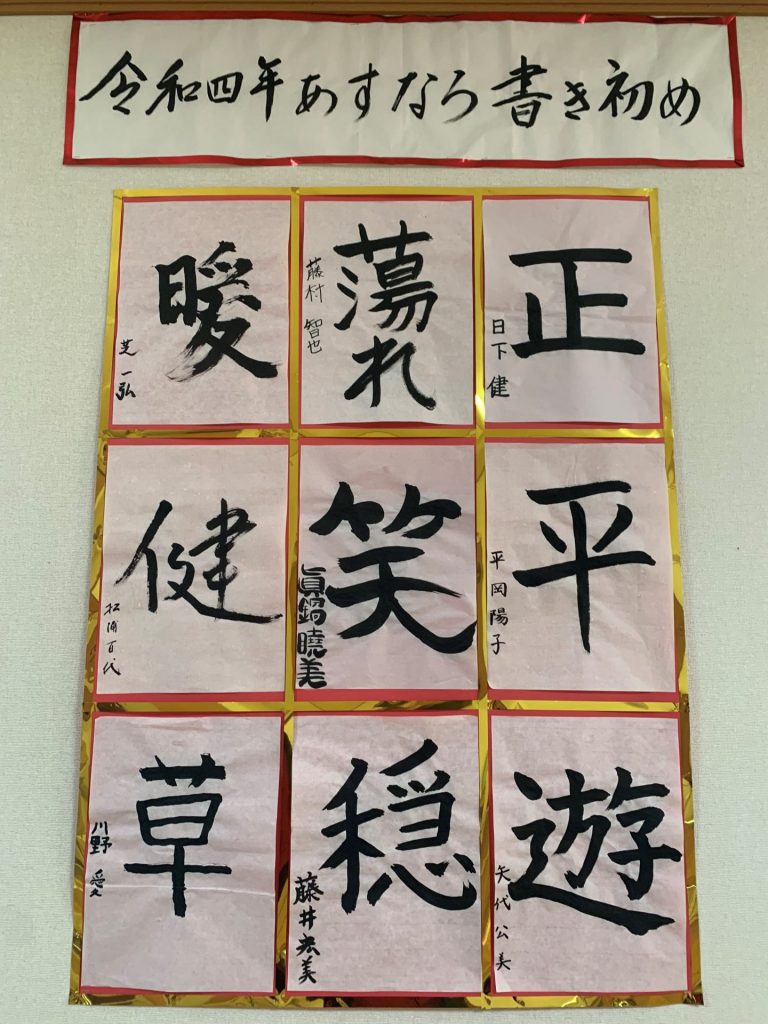 令和四年あすなろ書き初め
正
日下 健
蕩れ
藤村 智也
暖
芝 一弘
平
平岡陽子
笑
眞鍋曉美
健
松浦百代
遊
矢代公美
穏
藤井宏美
草
川野 愛